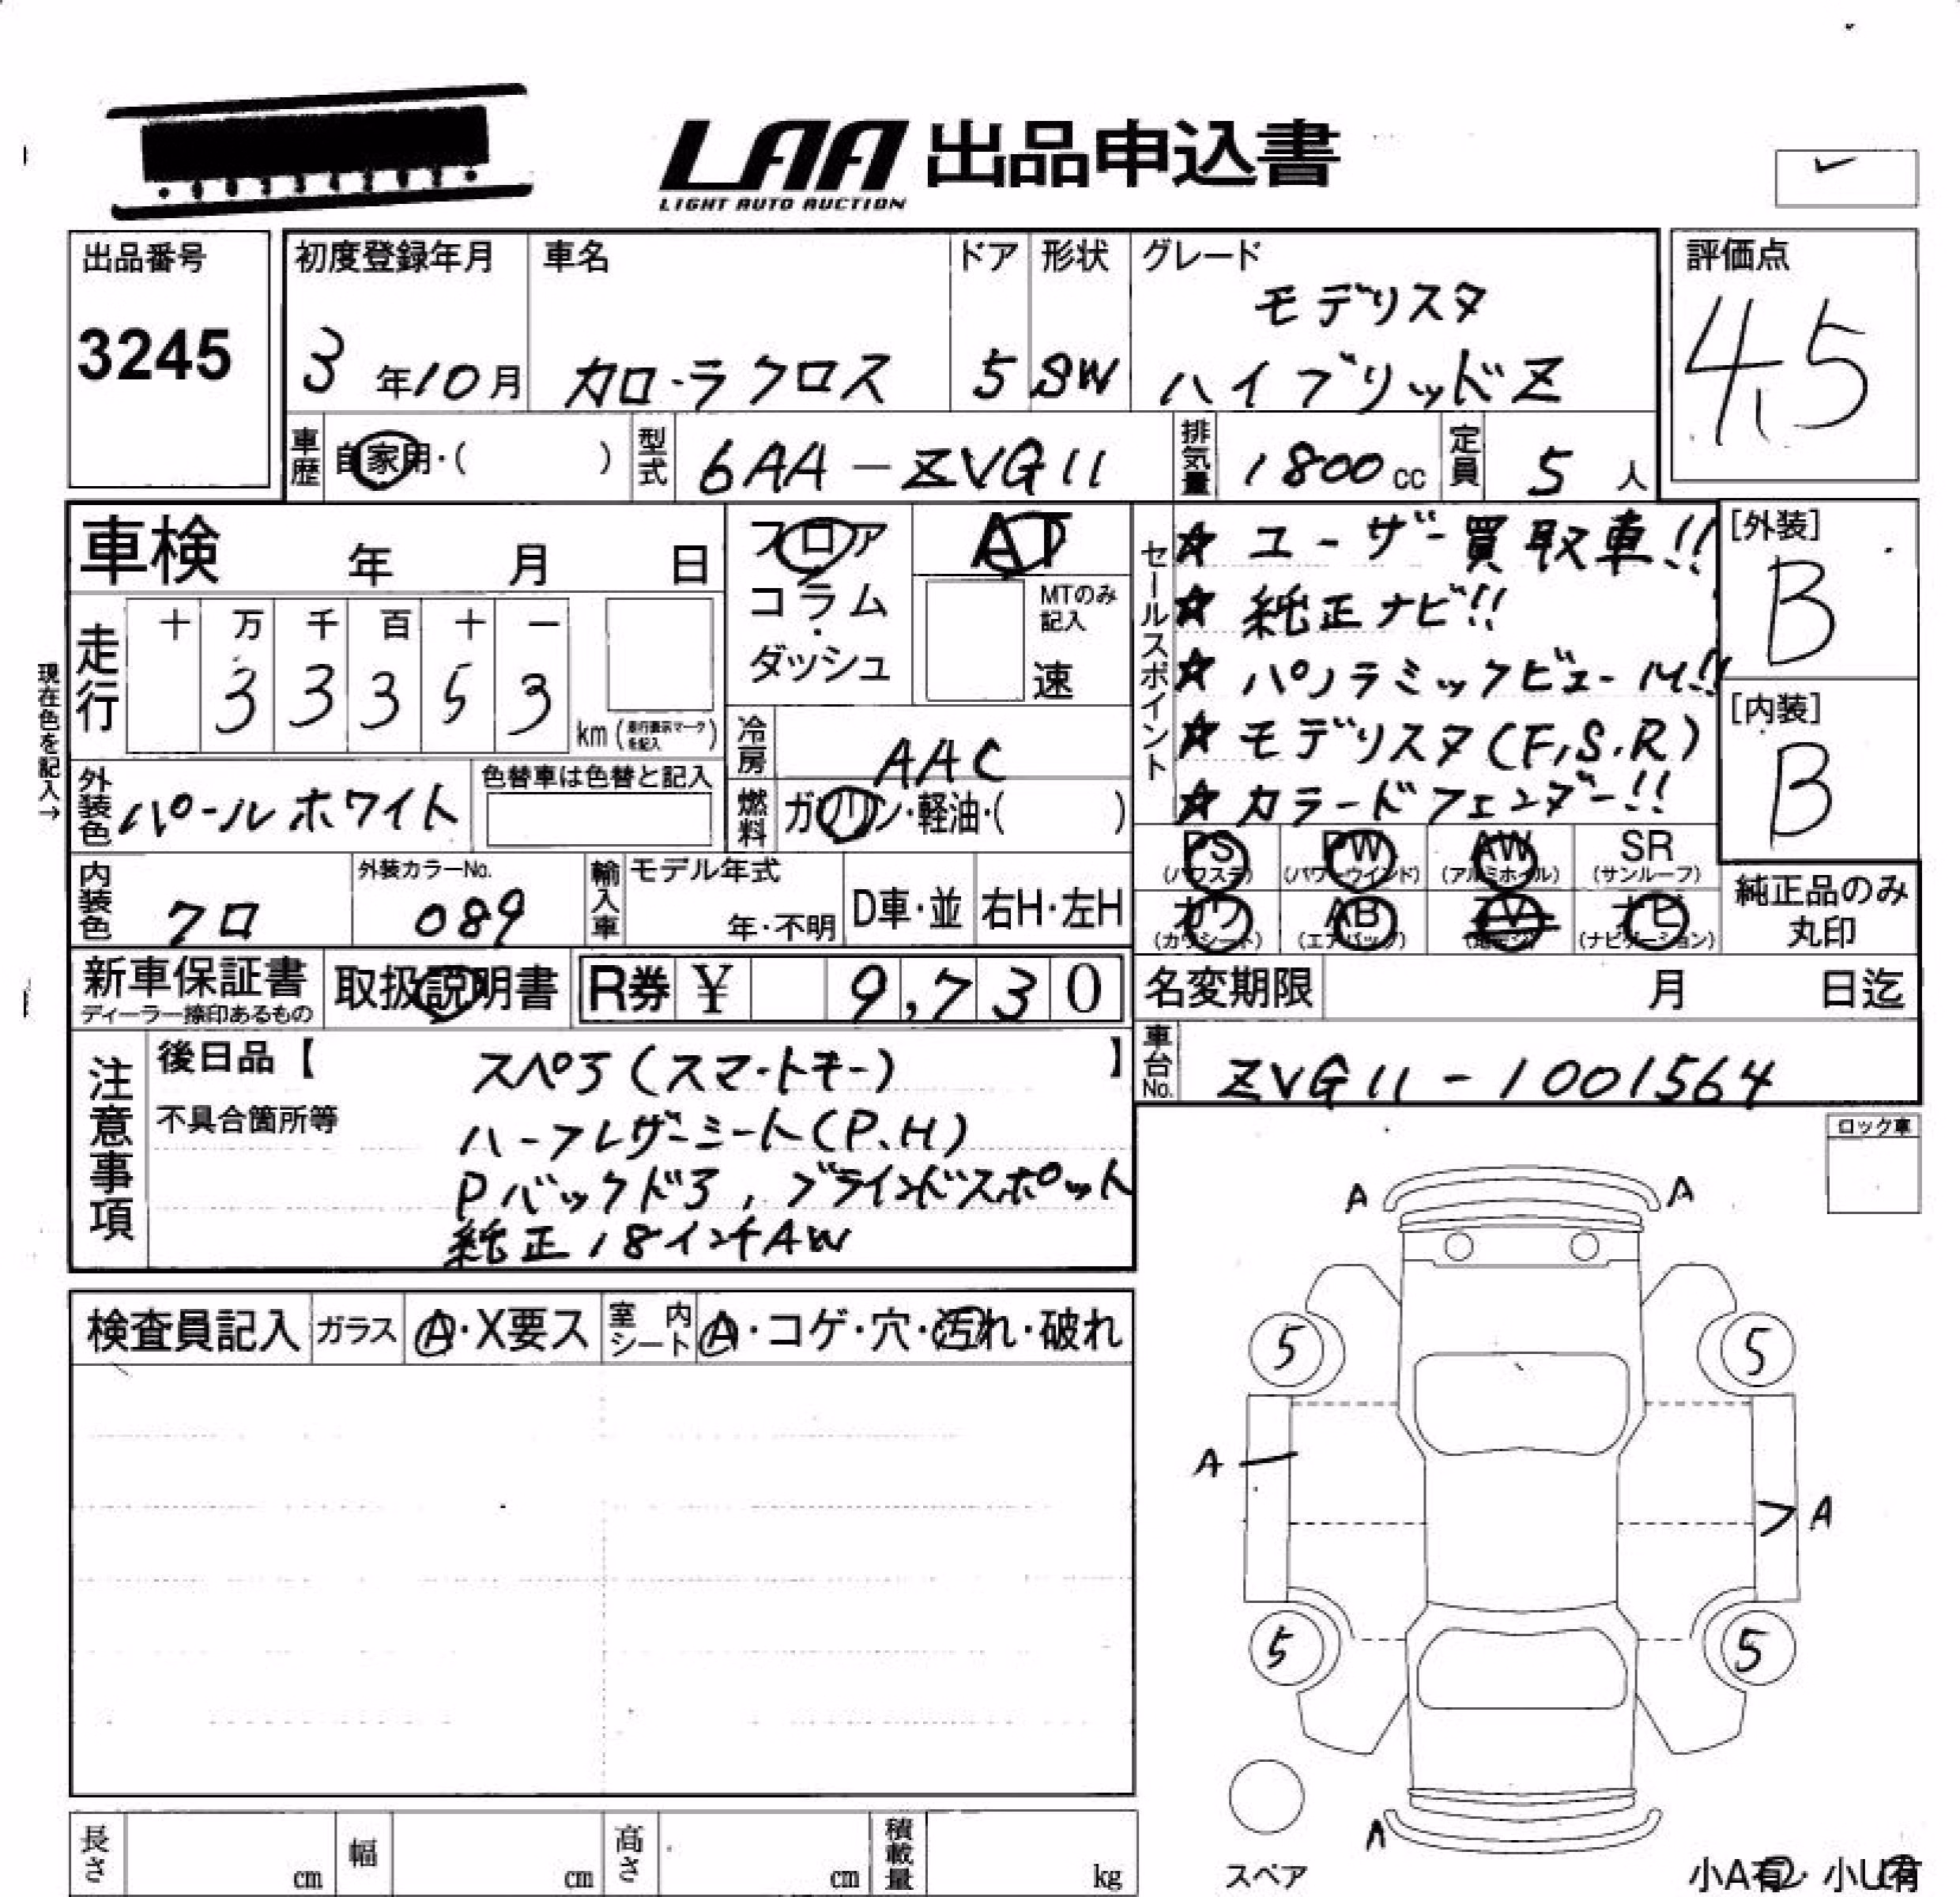 LAA 出品申込書
LIGHT AUTO AUCTION
出品番号
3245
初度登録年月
3年10月
車名
カローラクロス
ドア
5
形状
SW
グレード
モデリスタ
ハイブリッドZ
評価点
4.5
車歴
自家用・( )
型式
6AA-ZVG11
排気量
1800cc
定員
5人
車検 年 月 日
フロア
コラム
・
ダッシュ
AT
MTのみ
記入
速
セールスポイント
☆ ユーザー買取車!!
☆ 純正ナビ!!
☆ パノラミックビューM!!
☆ モデリスタ(F,S,R)
☆ カラードフェンダー!!
[外装]
B
[内装]
B
現在色を記入→
走行
十 万 千 百 十 一
3 3 3 5 3
km (走行表示マークを記入)
冷房
AAC
燃料
ガソリン・軽油・( )
外装色
パールホワイト
色替車は色替と記入
PS
(パワステ)
PW
(パワーウインド)
AW
(アルミホイル)
SR
(サンルーフ)
カワ
(カワシート)
AB
(エアバック)
TV
ナビ
(ナビゲーション)
純正品のみ
丸印
内装色
クロ
外装カラーNo.
089
輸入車
モデル年式
年・不明
D車・並
右H・左H
新車保証書
ディーラー捺印あるもの
取扱説明書
R券 ¥ 9,730
名変期限 月 日迄
車台No.
ZVG11-1001564
注意事項
後日品【 スペア(スマートキー) 】
不具合箇所等
ハーフレザーシート(P.H)
Pバックドア,ブラインドスポット
純正18インチAW
ロック車
検査員記入
ガラス
A・X要ス
室内シート
A・コゲ・穴・汚れ・破れ
A A
5 5
A A
5 5
A
スペア
長さ cm
幅 cm
高さ cm
積載量 kg
小A有・小U有